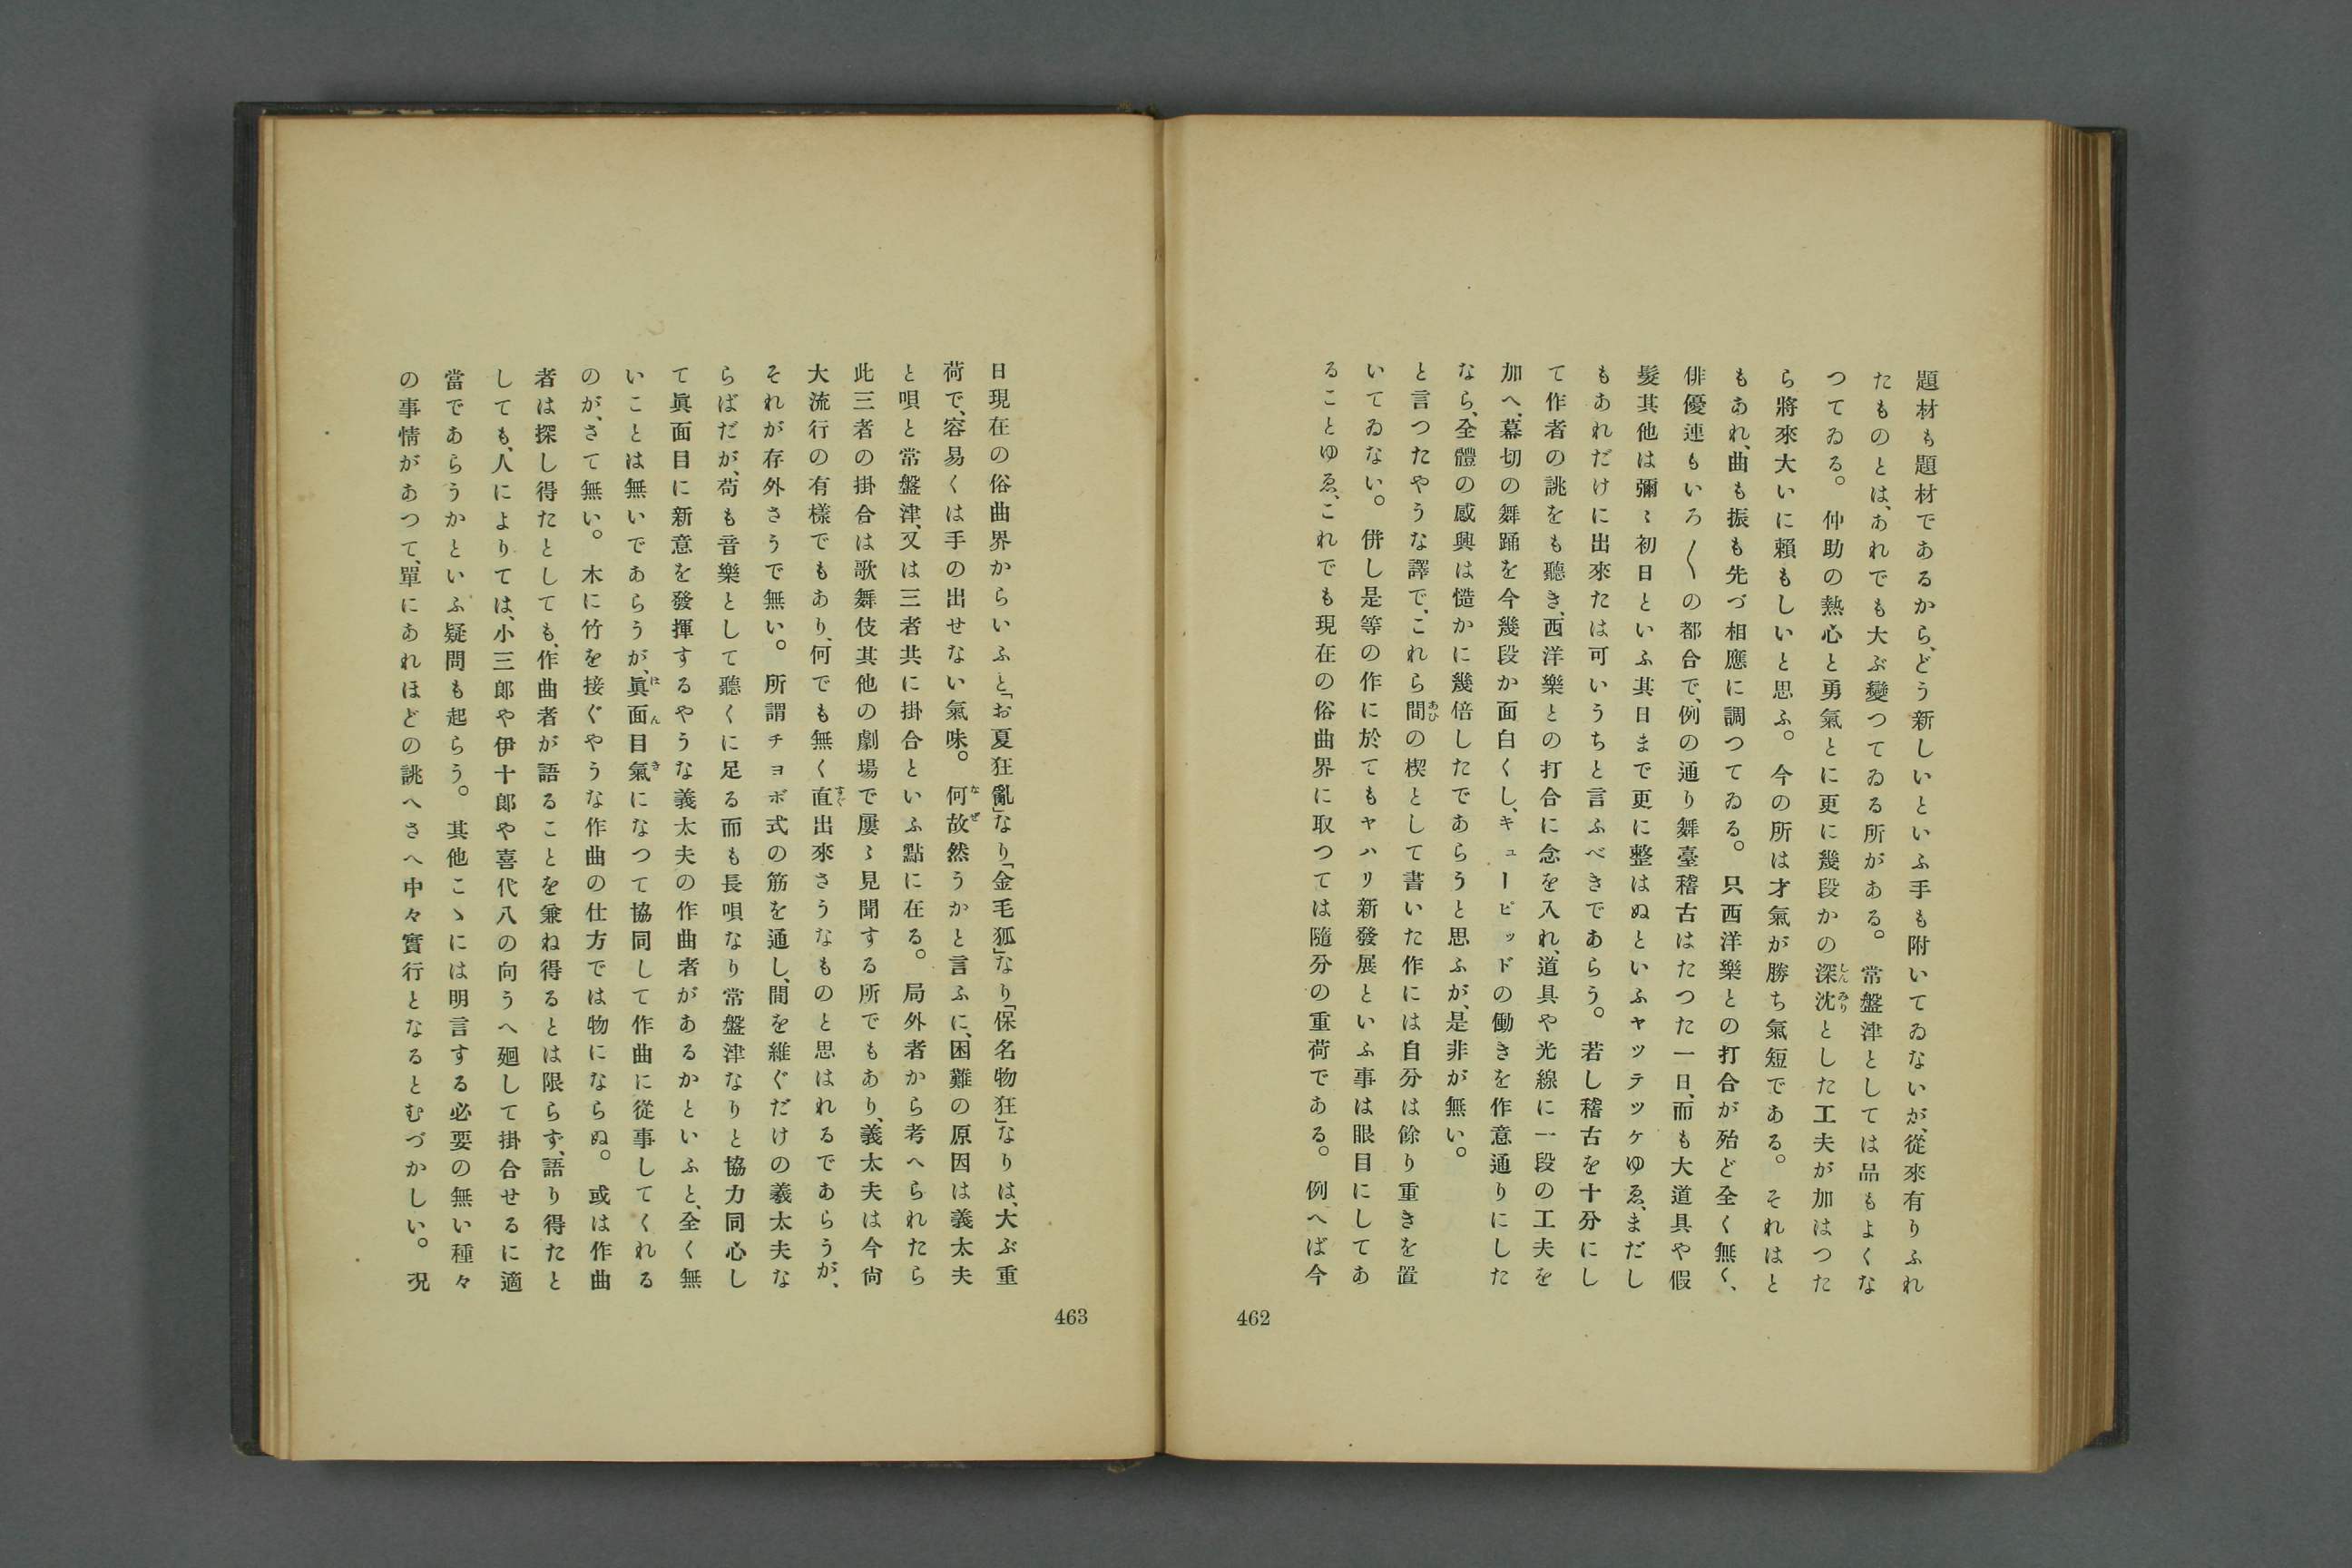 題材も題材であるから、どう新しいといふ手も附いてゐないが、從來有りふれ
たものとは、あれでも大ぶ變つてゐる所がある。常盤津としては品もよくな
つてゐる。仲助の熱心と勇氣とに更に幾段かの深沈とした工夫が加はつた
ら將來大いに頼もしいと思ふ。今の所は才氣が勝ち氣短である。それはと
もあれ、曲も振も先づ相應に調つてゐる。只西洋樂との打合が殆ど全く無く、
俳優連もいろ〱の都合で、例の通り舞臺稽古はたつた一日、而も大道具や假
髮其他は彌〻初日といふ其日まで更に整はぬといふヤッテッケゆゑ、まだし
もあれだけに出來たは可いうちと言ふべきであらう。若し稽古を十分にし
て作者の誂をも聽き、西洋樂との打合に念を入れ、道具や光線に一段の工夫を
加へ、幕切の舞踊を今幾段か面白くし、キューピッドの働きを作意通りにした
なら、全體の感興は慥かに幾倍したであらうと思ふが、是非が無い。
と言つたやうな譯で、これら間の楔として書いた作には自分は餘り重きを置
いてゐない。併し是等の作に於てもヤハリ新發展といふ事は眼目にしてあ
ることゆゑ、これでも現在の俗曲界に取つては隨分の重荷である。例へば今
462
日現在の俗曲界からいふと「お夏狂亂」なり「金毛狐」なり「保名物狂」なりは、大ぶ重
荷で、容易くは手の出せない氣味。何故然うかと言ふに、困難の原因は義太夫
と唄と常盤津、又は三者共に掛合といふ點に在る。局外者から考へられたら
此三者の掛合は歌舞伎其他の劇場で屢〻見聞する所でもあり、義太夫は今尙
大流行の有樣でもあり、何でも無く直出來さうなものと思はれるであらうが、
それが存外さうで無い。所謂チョボ式の筋を通し、間を維ぐだけの義太夫な
らばだが、苟も音樂として聽くに足る而も長唄なり常盤津なりと協力同心し
て眞面目に新意を發揮するやうな義太夫の作曲者があるかといふと、全く無
いことは無いであらうが、眞面目氣になつて協同して作曲に從事してくれる
のが、さて無い。木に竹を接ぐやうな作曲の仕方では物にならぬ。或は作曲
者は探し得たとしても、作曲者が語ることを兼ね得るとは限らず、語り得たと
しても、人によりては、小三郎や伊十郎や喜代八の向うへ廻して掛合せるに適
當であらうかといふ疑問も起らう。其他こゝには明言する必要の無い種々
の事情があつて、單にあれほどの誂へさへ中々實行となるとむづかしい。況
463